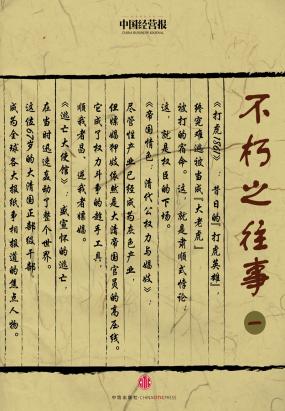 中国经营报
CHINA BUSINESS JOURNAL
不朽之往事
一
《打虎1861》：昔日的『打虎英雄』，
终究难逃被当成『大老虎』
被打的宿命。这，就是肃顺式悖论；
这，就是权臣的下场。
《帝国情色：清代公权力与嫖妓》：
尽管性产业已经成为灰色产业，
但嫖娼狎妓依然是大清帝国官员的高压线。
它成了权力斗争的趁手工具，
顺我者昌、逆我者嫖娼。
《逃亡大使馆》：盛宣怀的逃亡，
在当时迅速轰动了整个世界。
这位67岁的大清国正部级干部，
成为全球各大报纸争相报道的焦点人物。
中信出版社·CHINACITICPRESS